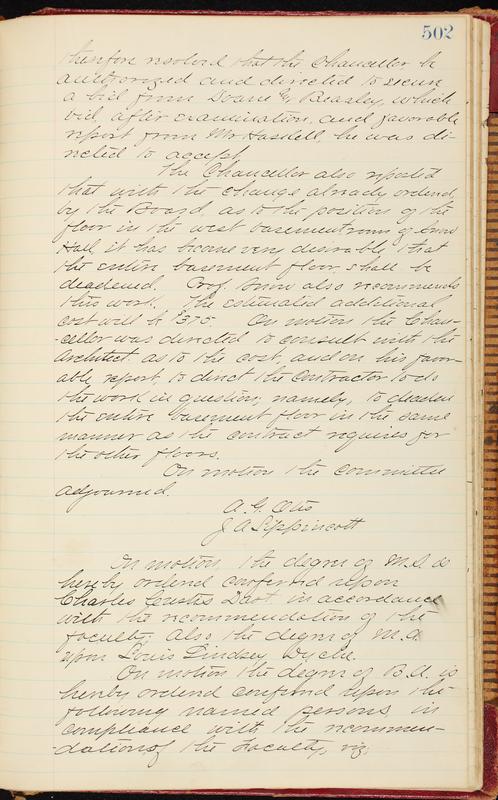 502
therefore resolved that the Chancellor be
authorized and directed to secure
a bid from Doane & Beasley, which
bid, after examination, and favorable
report from Mr Haskell, he was di-
rected to accept.
The Chancellor also reported
that with the change already ordered,
by the Board, as to the position of the
floor in the west basement rooms of Snow
Hall, it has become very desirable that
the entire basement floor shall be
deadened. Prof. Snow also recommends
this work. The estimated additional
cost will be $375. On motion the Chan-
-cellor was directed to consult with the
Architect as to the cost, and on his favor-
able report, to direct the Contractor to do
the work in question, namely, to deaden
the entire basement floor in the same
manner as the contract requires for
the other floors.
On motion the committee
adjourned.
A. G. Otis
J. A. Lippincott
On motion, the degree of M.A. is
hereby ordered conferred upon
Charles Dart, in accordance
with the recommendation of the
faculty. Also the degree of M.A.
upon Louis Lindsey Dyche.
On motion the degree of B.A. is
hereby ordered conferred upon the
following named persons, in
compliance with the recommen-
-dation of the Faculty, viz;